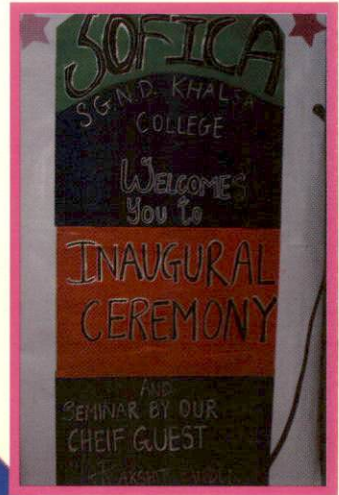 SOFICA
S.G.N.D. KHALSA
COLLEGE
WELCOMES
You to
INAUGURAL
CEREMONY
AND
SEMINAR BY OUR
CHEIF GUEST